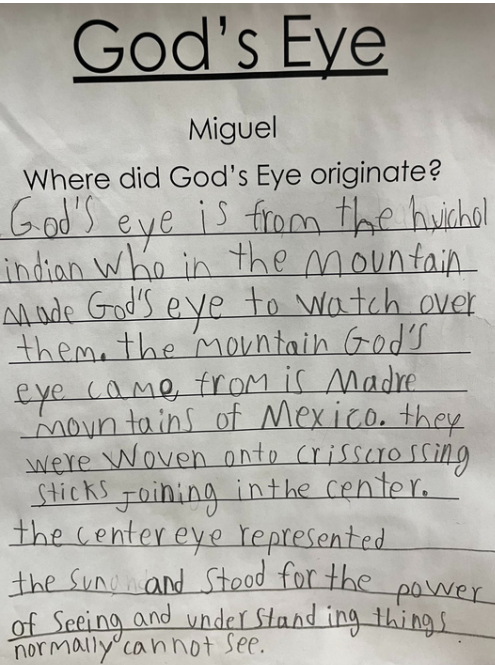 God's Eye
Miguel
Where did God's Eye originate?
God's eye is from the huichol
indian who in the mountain
made God's eye to watch over
them. the mountain God's
eye came from is Madre
mountains of Mexico. they
were woven onto crisscrossing
sticks joining in the center.
the center eye represented
the sun and stood for the power
of seeing and understanding things
normally cannot see.